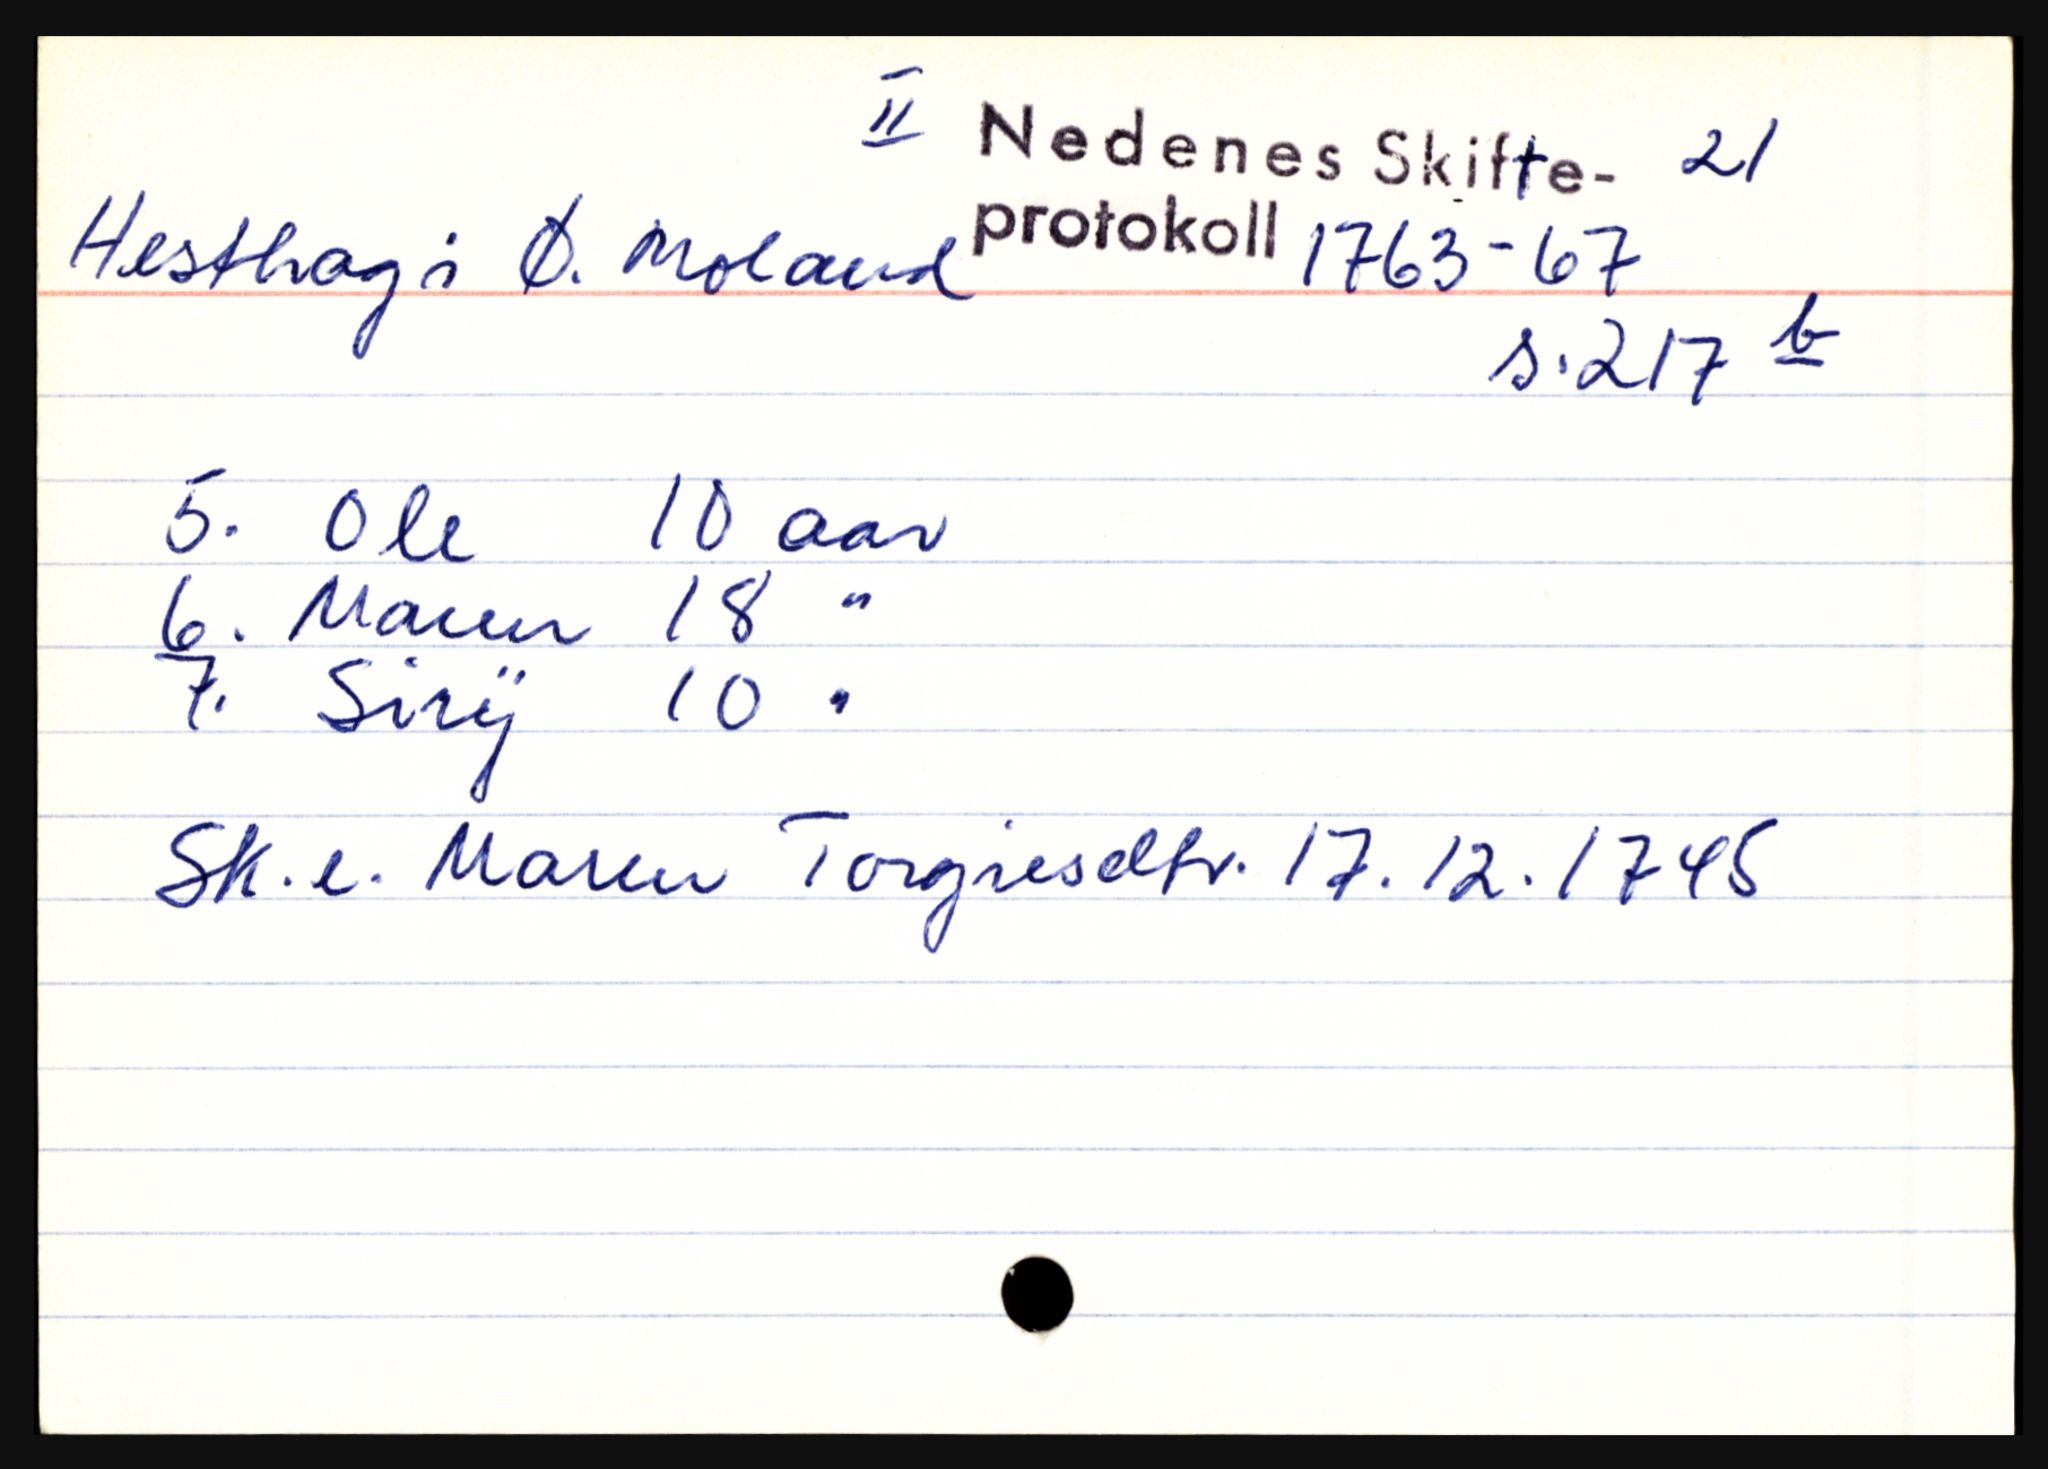 II Nedenes Skifte- 21
Hesthag i Ø. Moland protokoll 1763-67
s. 217 b
5. Ole 10 aar
6. Maren 18 "
7. Sirÿ 10 "
Sk. e. Maren Torgiesdtr. 17.12.1745